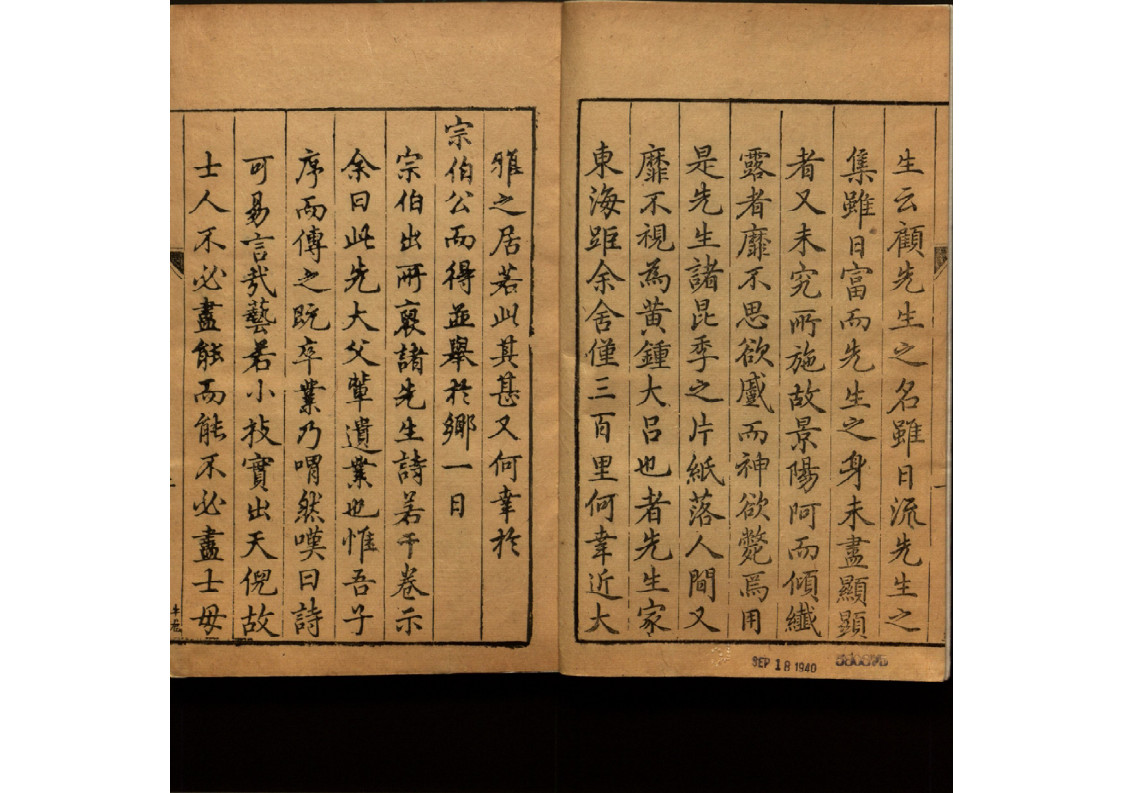 生云顧先生之名雖日流先生之
集雖日富而先生之身未盡顯顯
者又未究所施故景陽阿而傾纖
露者靡不思欲戚而神欲斃焉用
是先生諸昆季之片紙落人間又
靡不視為黄鍾大呂也者先生家
東海距余舍僅三百里何幸近大
雅之居若此其甚又何幸於
宗伯公而得並舉於鄉一日
宗伯出所裒諸先生詩若干卷示
余曰此先大父輩遺業也惟吾子
序而傳之既卒業乃喟然嘆曰詩
可易言哉藝若小技實出天倪故
士人不必盡能而能不必盡士毋
SEP 18 1940